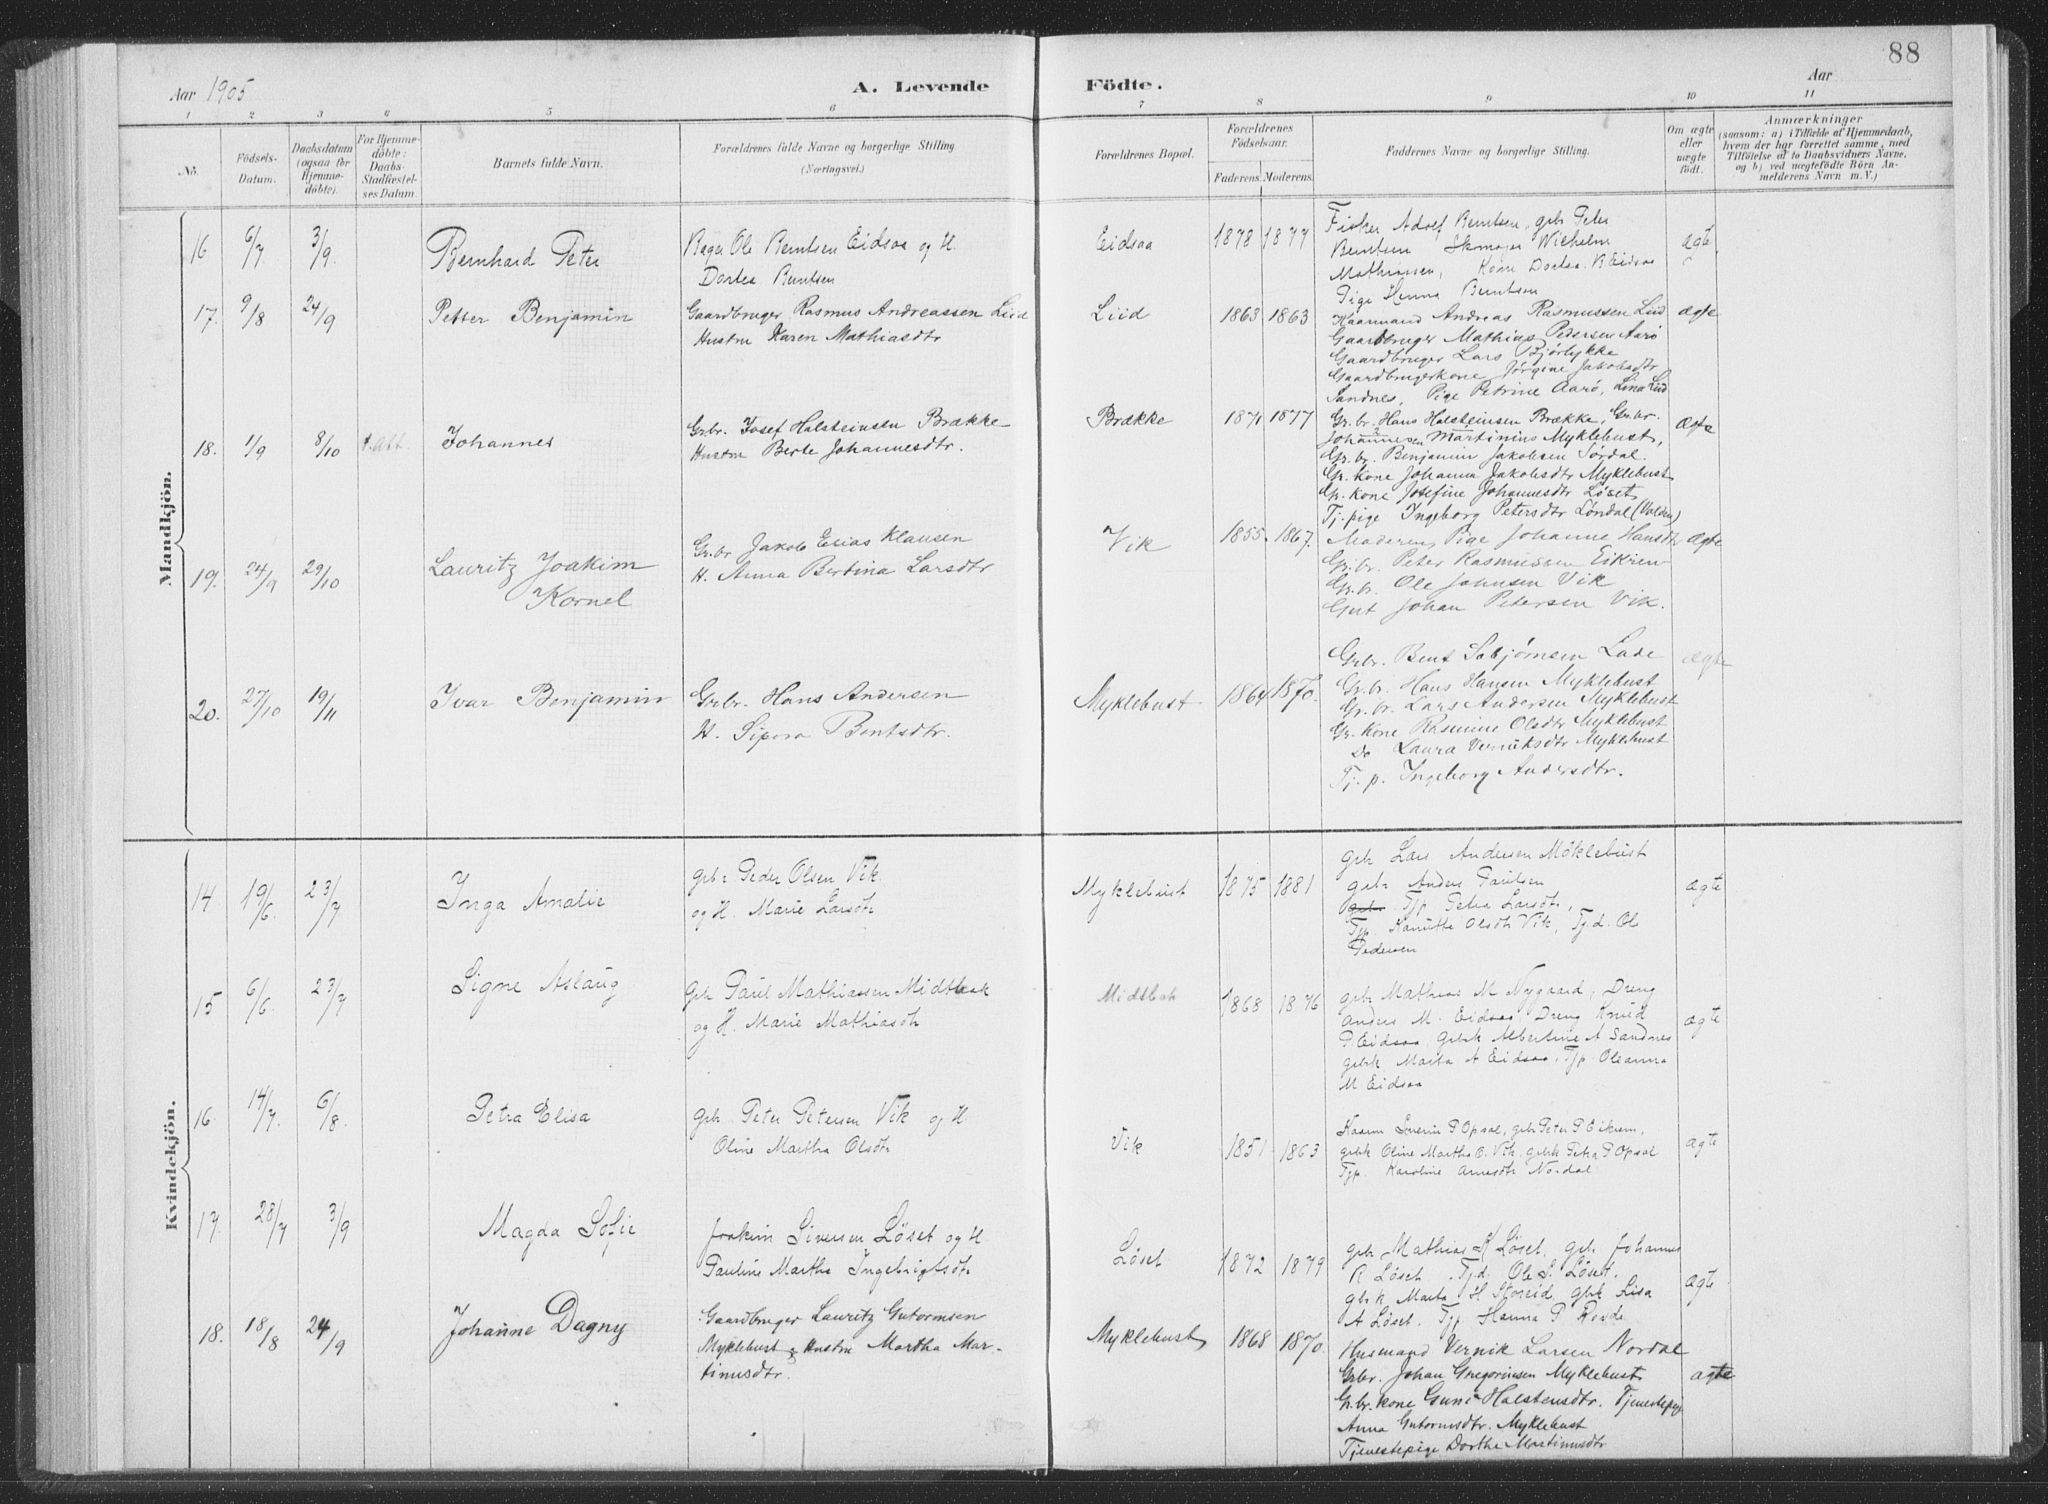 88
Aar 1905
A. Levende
Födte.
Aar
1 2 3 4 5 6 7 8 9 10 11
No.
Födsels-Datum.
Daabsdatum (ogsaa for Hjemme-döbte).
For Hjemme-döbte: Daabs-Stadfæstel-ses Datum.
Barnets fulde Navn.
Forældrenes fulde Navne og borgerlige Stilling.
(Næringsvei.)
Forældrenes Bopæl.
Forældrenes Födselsaar.
Faderens. Moderens.
Faddernes Navne og borgerlige Stilling.
Om ægte eller uægte födt.
Anmærkninger
(saasom: a) i Tilfælde af Hjemmedaab,
hvem der har forrettet samme, med
Tilföielse af to Daabsvidners Navne.
og b) ved uægtefödte Börn An-
melderens Navn m. V.)
Mandkjön.
16 6/7 3/9. Bernhard Peter
Bager Ole Berntsen Eidsaa og H.
Dortea Berntsen
Eidsaa 1878 1877
Fisker Adolf Berntsen, gbr Peter
Berntsen Skomager Wilhelm
Mathiassen, Kone Dortea B Eidsaa
Pige Hanna Berntsen
ægte
17. 9/8 24/9 Petter Benjamin
Gaardbruger Rasmus Andreassen Liid
Hustru Karen Mathiasdtr
Liid 1863 1863
Kaarmand Andreas Rasmussen Liid
Gaardbruger Mathias Pedersen Aarø
Gaardbruger Lars Bjørlykke
Gaardbrugerkone Jørgine Jakobsdtr
Sandnes, Pige Petrine Aarø, Lina Liid
ægte
18. 1/9 8/10 Johannes
Gr.br. Josef Halsteinsen Brække
Hustru Berte Johannesdtr.
Brække 1871 1877
Gr.br. Hans Halsteinsen Brække, Gr.br.
Johannesen Martinius Myklebust,
Gr.br. Benjamin Jakobsen Sørdal.
Gr.kone Johanna Jakobsdtr Myklebust
Gr.kone Josefine Johannesdtr Løset,
Tj.pige Ingeborg Petersdtr Løndal (Volden)
ægte
19. 24/9 29/10 Lauritz Joakim
Kornel
Gr.br Jakob Elias Klausen
H. Anna Bertina Larsdtr
Vik 1855. 1867.
Moderen, Pige Johanne Hansdtr
Gr.br. Peter Rasmussen Eikrem
Gr.br. Ole Johnsen Vik
Gut Johan Petersen Vik.
ægte
20. 27/10 19/11 Ivar Benjamin
Gr.br. Hans Andersen
H. Sipora Bentsdtr.
Myklebust 1864 1870.
Gr.br. Bent Sebjørnsen Lade
Gr.br. Hans Hansen Myklebust
Gr.br. Lars Andersen Myklebust
Gr.kone Rasmine Olsdtr Myklebust
Do Laura Verniksdtr Myklebust
Tj.p. Ingeborg Andersdtr.
ægte
Kvindekjön.
14 19/6. 23/7 Inga Amalie
gbr Peder Olsen Vik
og H. Marie Larsdtr
Myklebust 1875 1881
gbr Lars Andersen Möklebust
gbr Anders Paulsen
Tjp Petra Larsdtr,
Tjp. Kanutte Olsdtr Vik, Tj.d. Ol
Pedersen
ægte
15 6/6. 23/7 Signe Aslaug
gbr Paul Mathiassen Midtbak
og H. Marie Mathiasdtr
Midtbak 1868 1876
gbr Mathias M Nygaard, Dreng
Anders M. Eidsaa, Dreng Knud
P. Eidsaa, gbrk Albertine A Sandnes
gbrk Marta A Eidsaa, Tjp. Oleanna
M Eidsaa
ægte
16. 14/7. 6/8. Petra Elisa
gbr. Peter Petersen Vik og H
Oline Martha Olsdtr
Vik 1851 1863
Kaarm Severin P Opsal, gbr Peter P Eikrem,
gbrk Oline Martha O. Vik, gbrk Petra P Opsal
Tjp. Karoline Arnesdtr Nordal
ægte
17. 28/7 3/9 Magda Sofie
Joakim Siversen Løset og H
Pauline Martha Ingebrigtsdtr
Løset 1872 1879
gbr Mathias K Løset, gbr Johannes
R Løset, Tjd. Ole S. Løset.
gbrk Marta H Storeid gbrk Lisa
A Løset. Tjp Hanna P Rovde
ægte
18. 18/8 24/9 Johanne Dagny
Gaardbruger Lauritz Gutormsen
Myklebust og Hustru Martha Mar-
tinusdtr.
Myklebust 1868 1870.
Husmand Vernik Larsen Nordal
Gr.br. Johan Gregoriusen Myklebust
Gr.br.kone Guni Halstensdtr. Tjenestepig
Anna Gutormsdtr. Myklebust
Tjenestepige Dorthe Martinusdtr
ægte